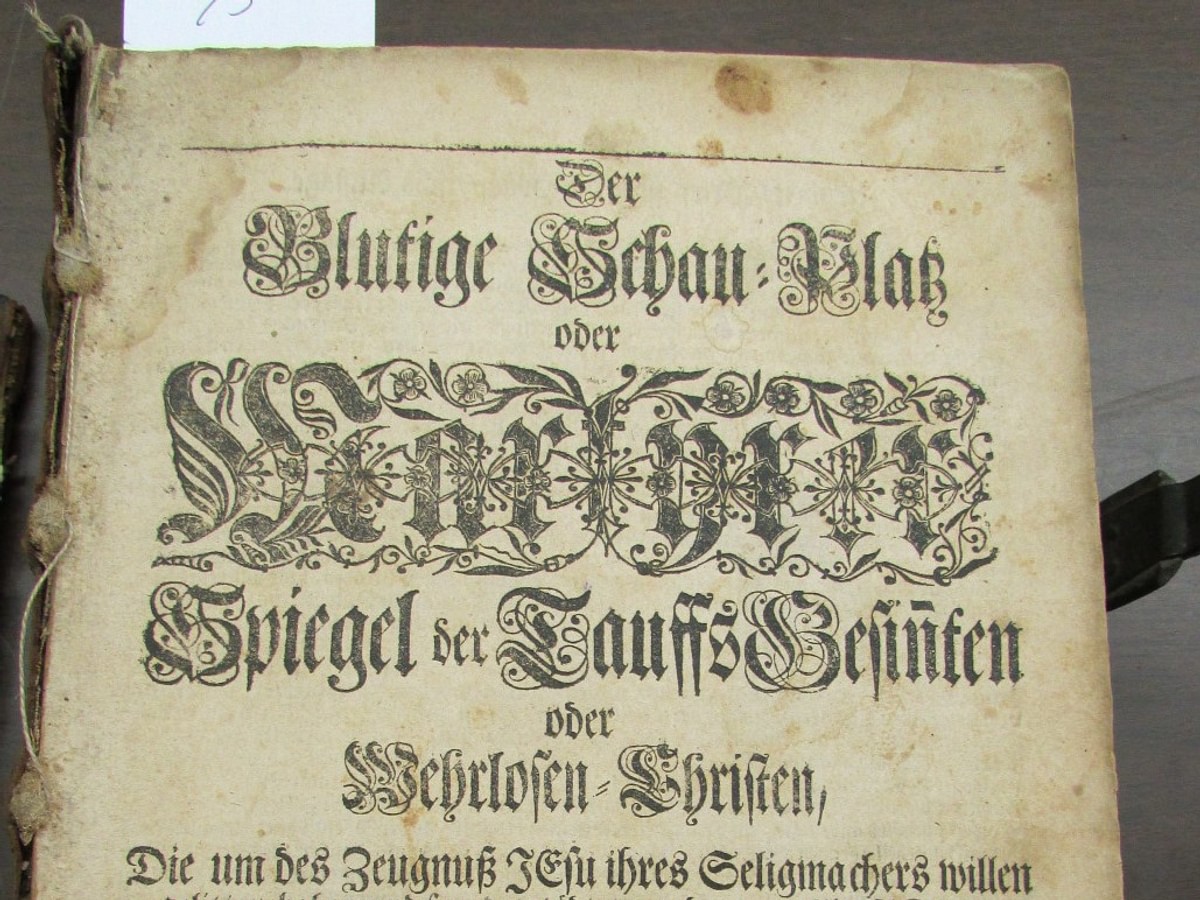 Der
Blutige Schau⸗Platz
oder
Martyrer
Spiegel der TauffsGesiñten
oder
Wehrlosen⸗Christen,
Die um des Zeugnuß JEsu ihres Seligmachers willen